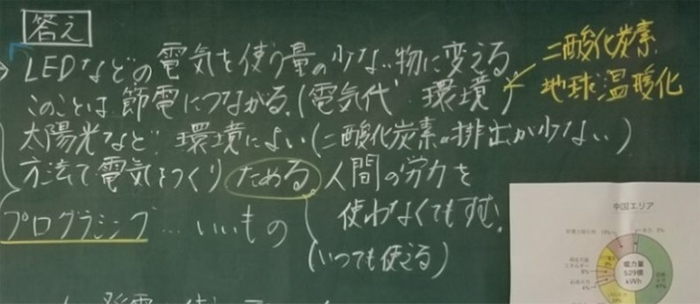 答え
LEDなどの電気を使う量の少ない物に変える
このことは節電につながる。(電気代 環境)
二酸化炭素
地球温暖化
太陽光など 環境によい(二酸化炭素の排出が少ない)
方法で電気をつくり ためる
人間の労力を
使わなくてもすむ!
(いつでも使える)
プログラミング…いいもの
中国エリア
総力量
529億
kWh